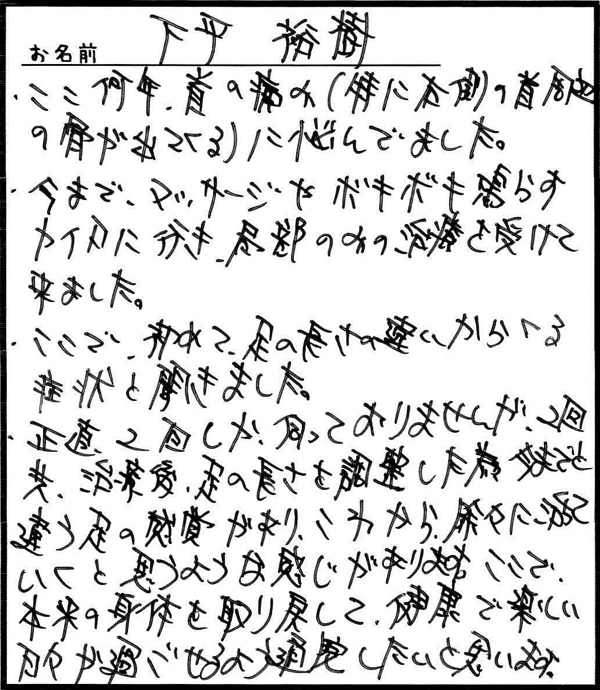 お名前 下平 裕樹
・ここ何年、首の痛み(特に右側の首周辺
の骨が出てくる)に悩んでました。
・今まで、マッサージやボキボキ鳴らす
カイロに行き、局部のみの治療を受けて
来ました。
・ここで、初めて、足の長さの違いからくる
症状と聞きました。
・正直、2回しか、伺っておりませんが、2回
共、治療後、足の長さを調整した為、今までと
違う足の感覚があり、これから、徐々に治って
いくと思うような感じがあります。ここで、
本来の身体を取り戻して、健康で楽しい
日々が過ごせるよう通院したいと思います。